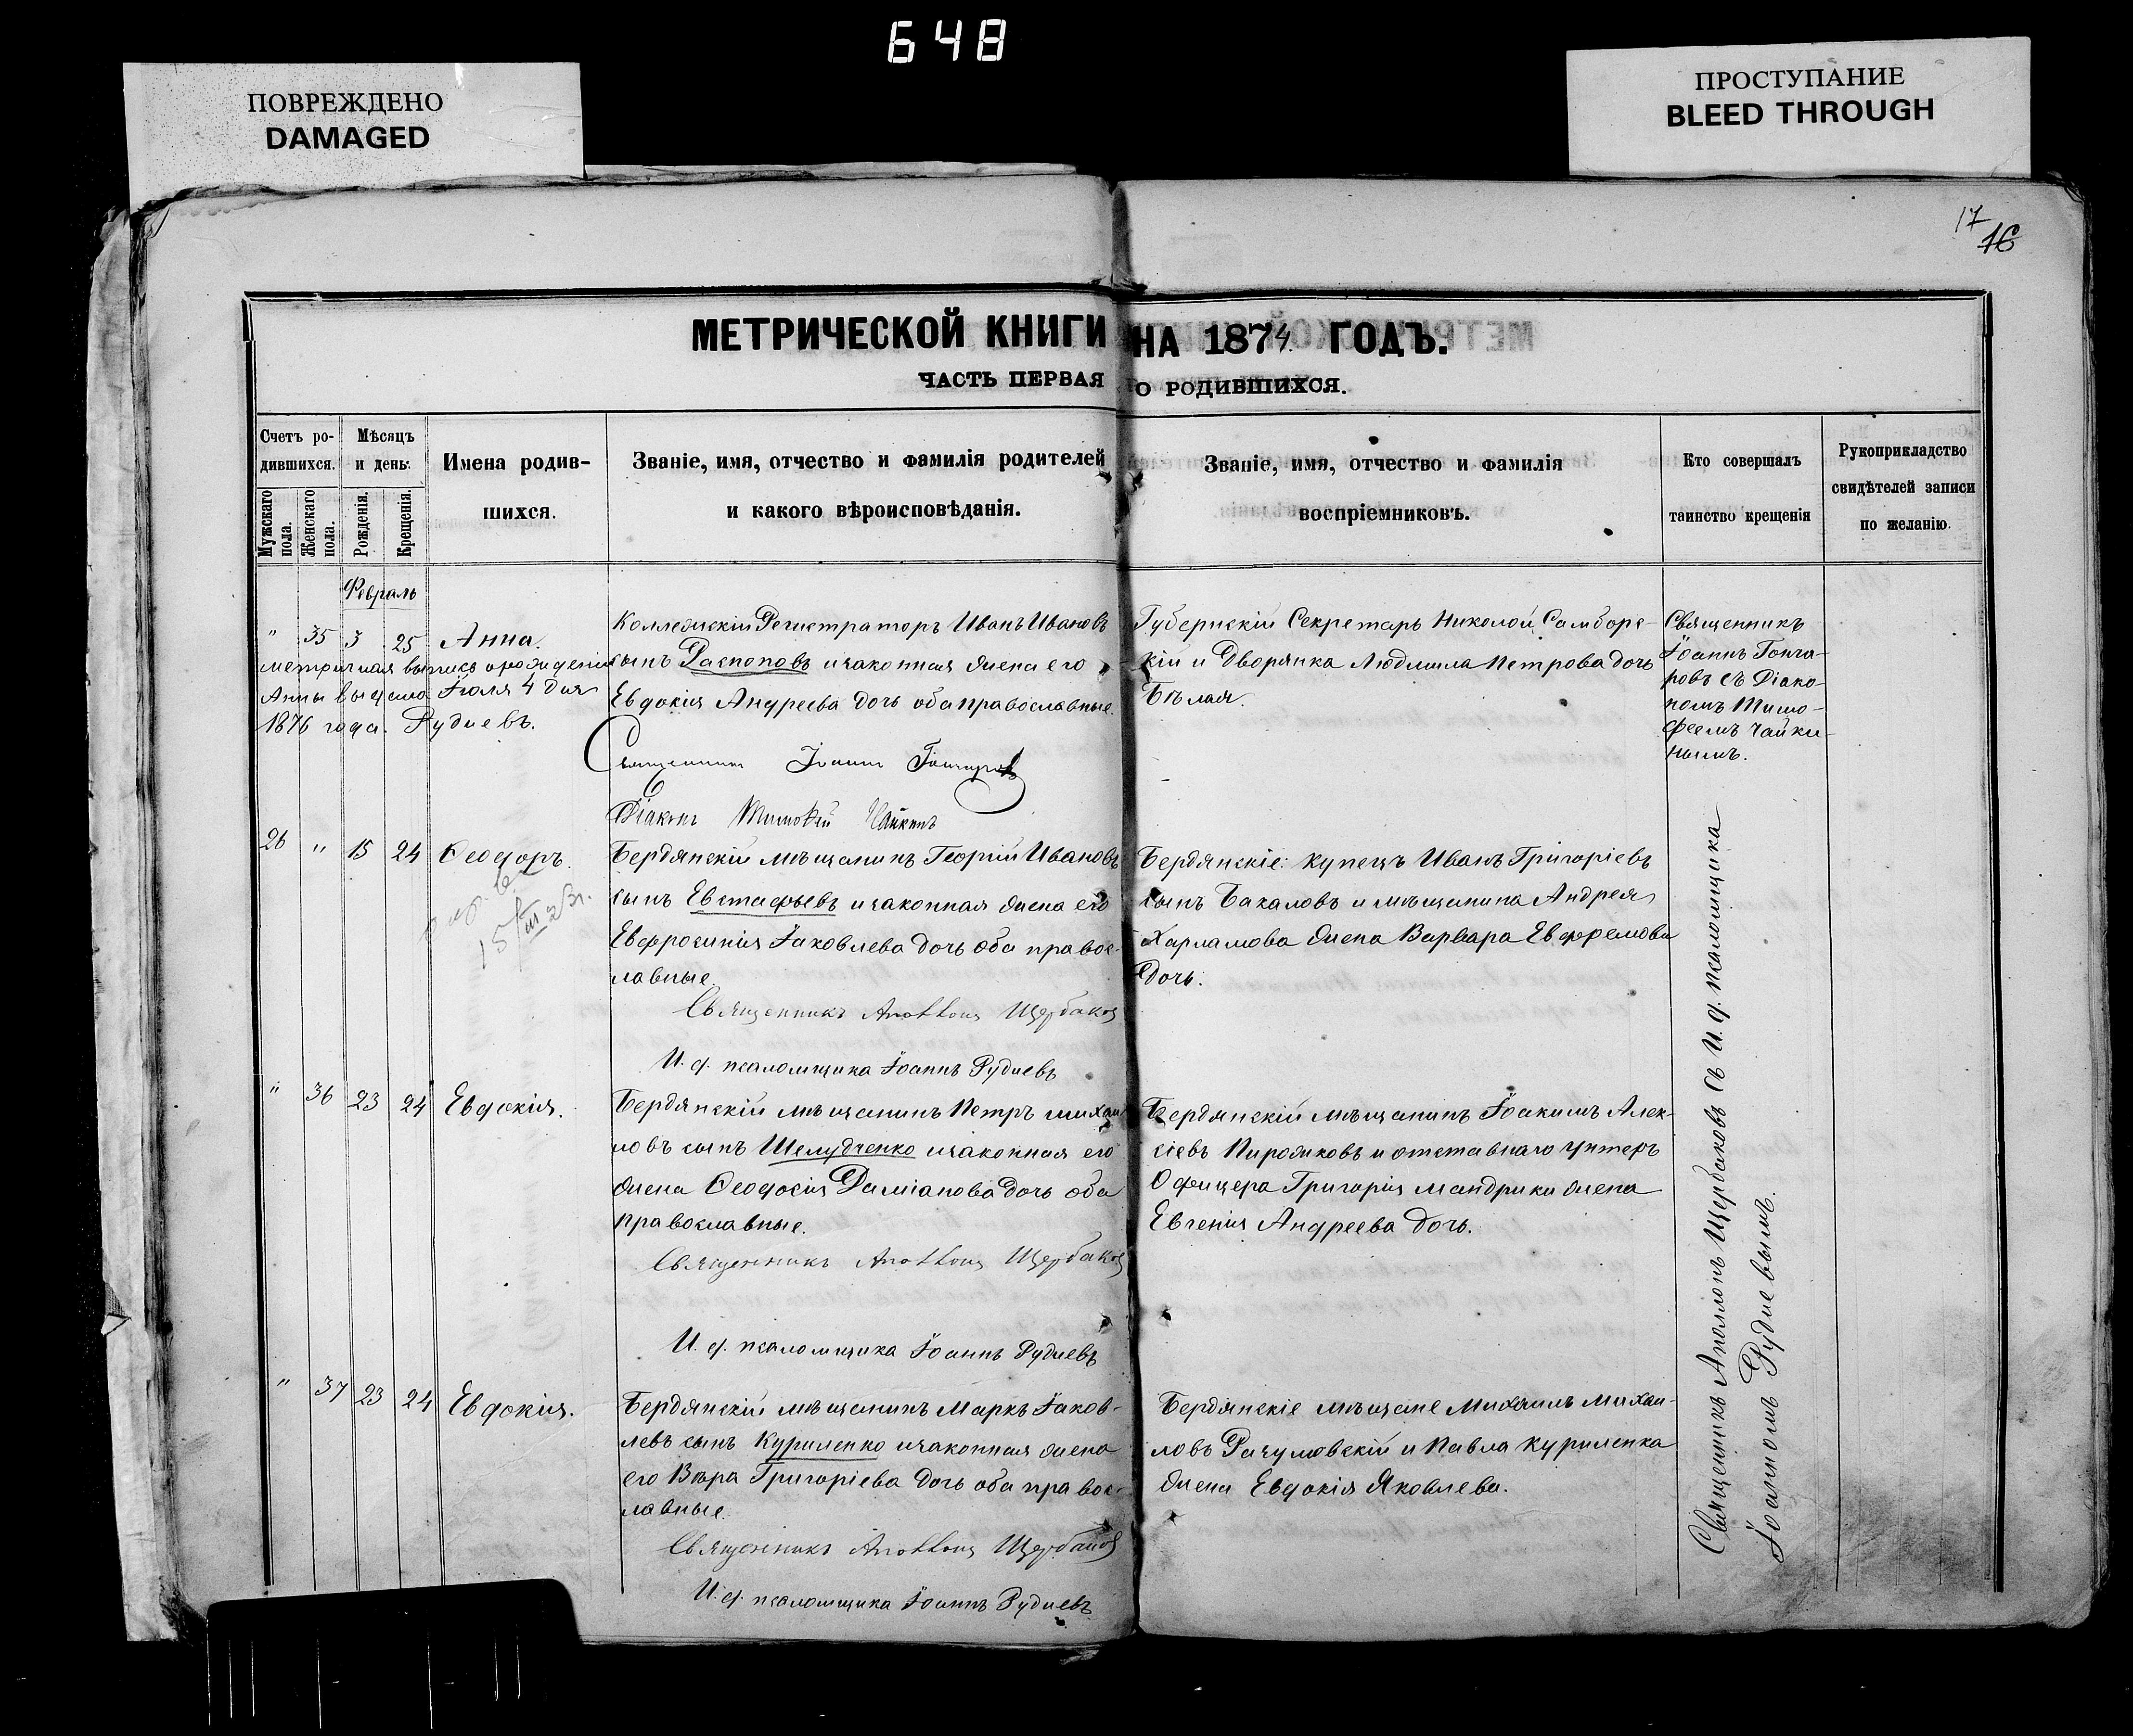 648
ПОВРЕЖДЕНО
DAMAGED
ПРОСТУПАНИЕ
BLEED THROUGH
17
16
МЕТРИЧЕСКОЙ КНИГИ НА 1874 ГОДЪ.
ЧАСТЬ ПЕРВАЯ О РОДИВШИХСЯ.
Счетъ ро-
дившихся.
Мужскаго
пола.
Женскаго
пола.
Мѣсяцъ
и день:
Рожденія.
Крещенія.
Имена родив-
шихся.
Званіе, имя, отчество и фамилія родителей
и какого вѣроисповѣданія.
Званіе, имя, отчество и фамилія
воспріемниковъ.
Кто совершалъ
таинство крещенія
Рукоприкладство
свидѣтелей записи
по желанію.
Февраль
" 35 3 25 Анна.
метричная выпись о рожденіи
Анны выдана Іюля 4 дня
1876 года. Рудневъ.
Коллежскій Регистраторъ Иванъ Ивановъ
сынъ Распоповъ и законная жена его
Евдокія Андреева дочь оба православные.
Священникъ Іоаннъ Гончаровъ
Діаконъ Тимоѳей Чайкинъ
Губернскій Секретарь Николай Самборс-
кій и Дворянка Людмила Петрова дочь
Бѣлая.
Священникъ
Іоаннъ Гонча-
ровъ съ Діако-
номъ Тимо-
феемъ Чайки-
нымъ.
26 " 15 24 Ѳеодоръ.
15/III 23г.
Бердянскій мѣщанинъ Георгій Ивановъ
сынъ Евстафьевъ и законная жена его
Евфросинія Іаковлева дочь оба правос-
лавные.
Священникъ Аполлонъ Щербаковъ
И. д. псаломщика Іоаннъ Рудневъ
Бердянскіе: купецъ Иванъ Григоріевъ
сынъ Бакаловъ и мѣщанина Андрея
Харламова жена Варвара Евфремова
дочь.
" 36 23 24 Евдокія.
Бердянскій мѣщанинъ Петръ Михаи
ловъ сынъ Шелудченко и законная его
жена Ѳеодосія Даміанова дочь оба
православные.
Священникъ Аполлонъ Щербаковъ
И. д. псаломщика Іоаннъ Рудневъ
Бердянскій мѣщанинъ Іоакимъ Алек-
сіевъ Пирожковъ и отставнаго унтеръ
Офицера Григорія Мандрики жена
Евгенія Андреева дочь.
" 37 23 24 Евдокія.
Бердянскій мѣщанинъ Маркъ Іаков-
левъ сынъ Куриленко и законная жена
его Вѣра Григоріева дочь оба правос-
лавные.
Священникъ Аполлонъ Щербаковъ
И. д. псаломщика Іоаннъ Рудневъ
Бердянскіе мѣщане Михаилъ Михаи-
ловъ Разумовскій и Павла Куриленка
жена Евдокія Яковлева.
Священникъ Аполлонъ Щербаковъ съ И. д. псаломщика
Іоанномъ Рудневымъ.